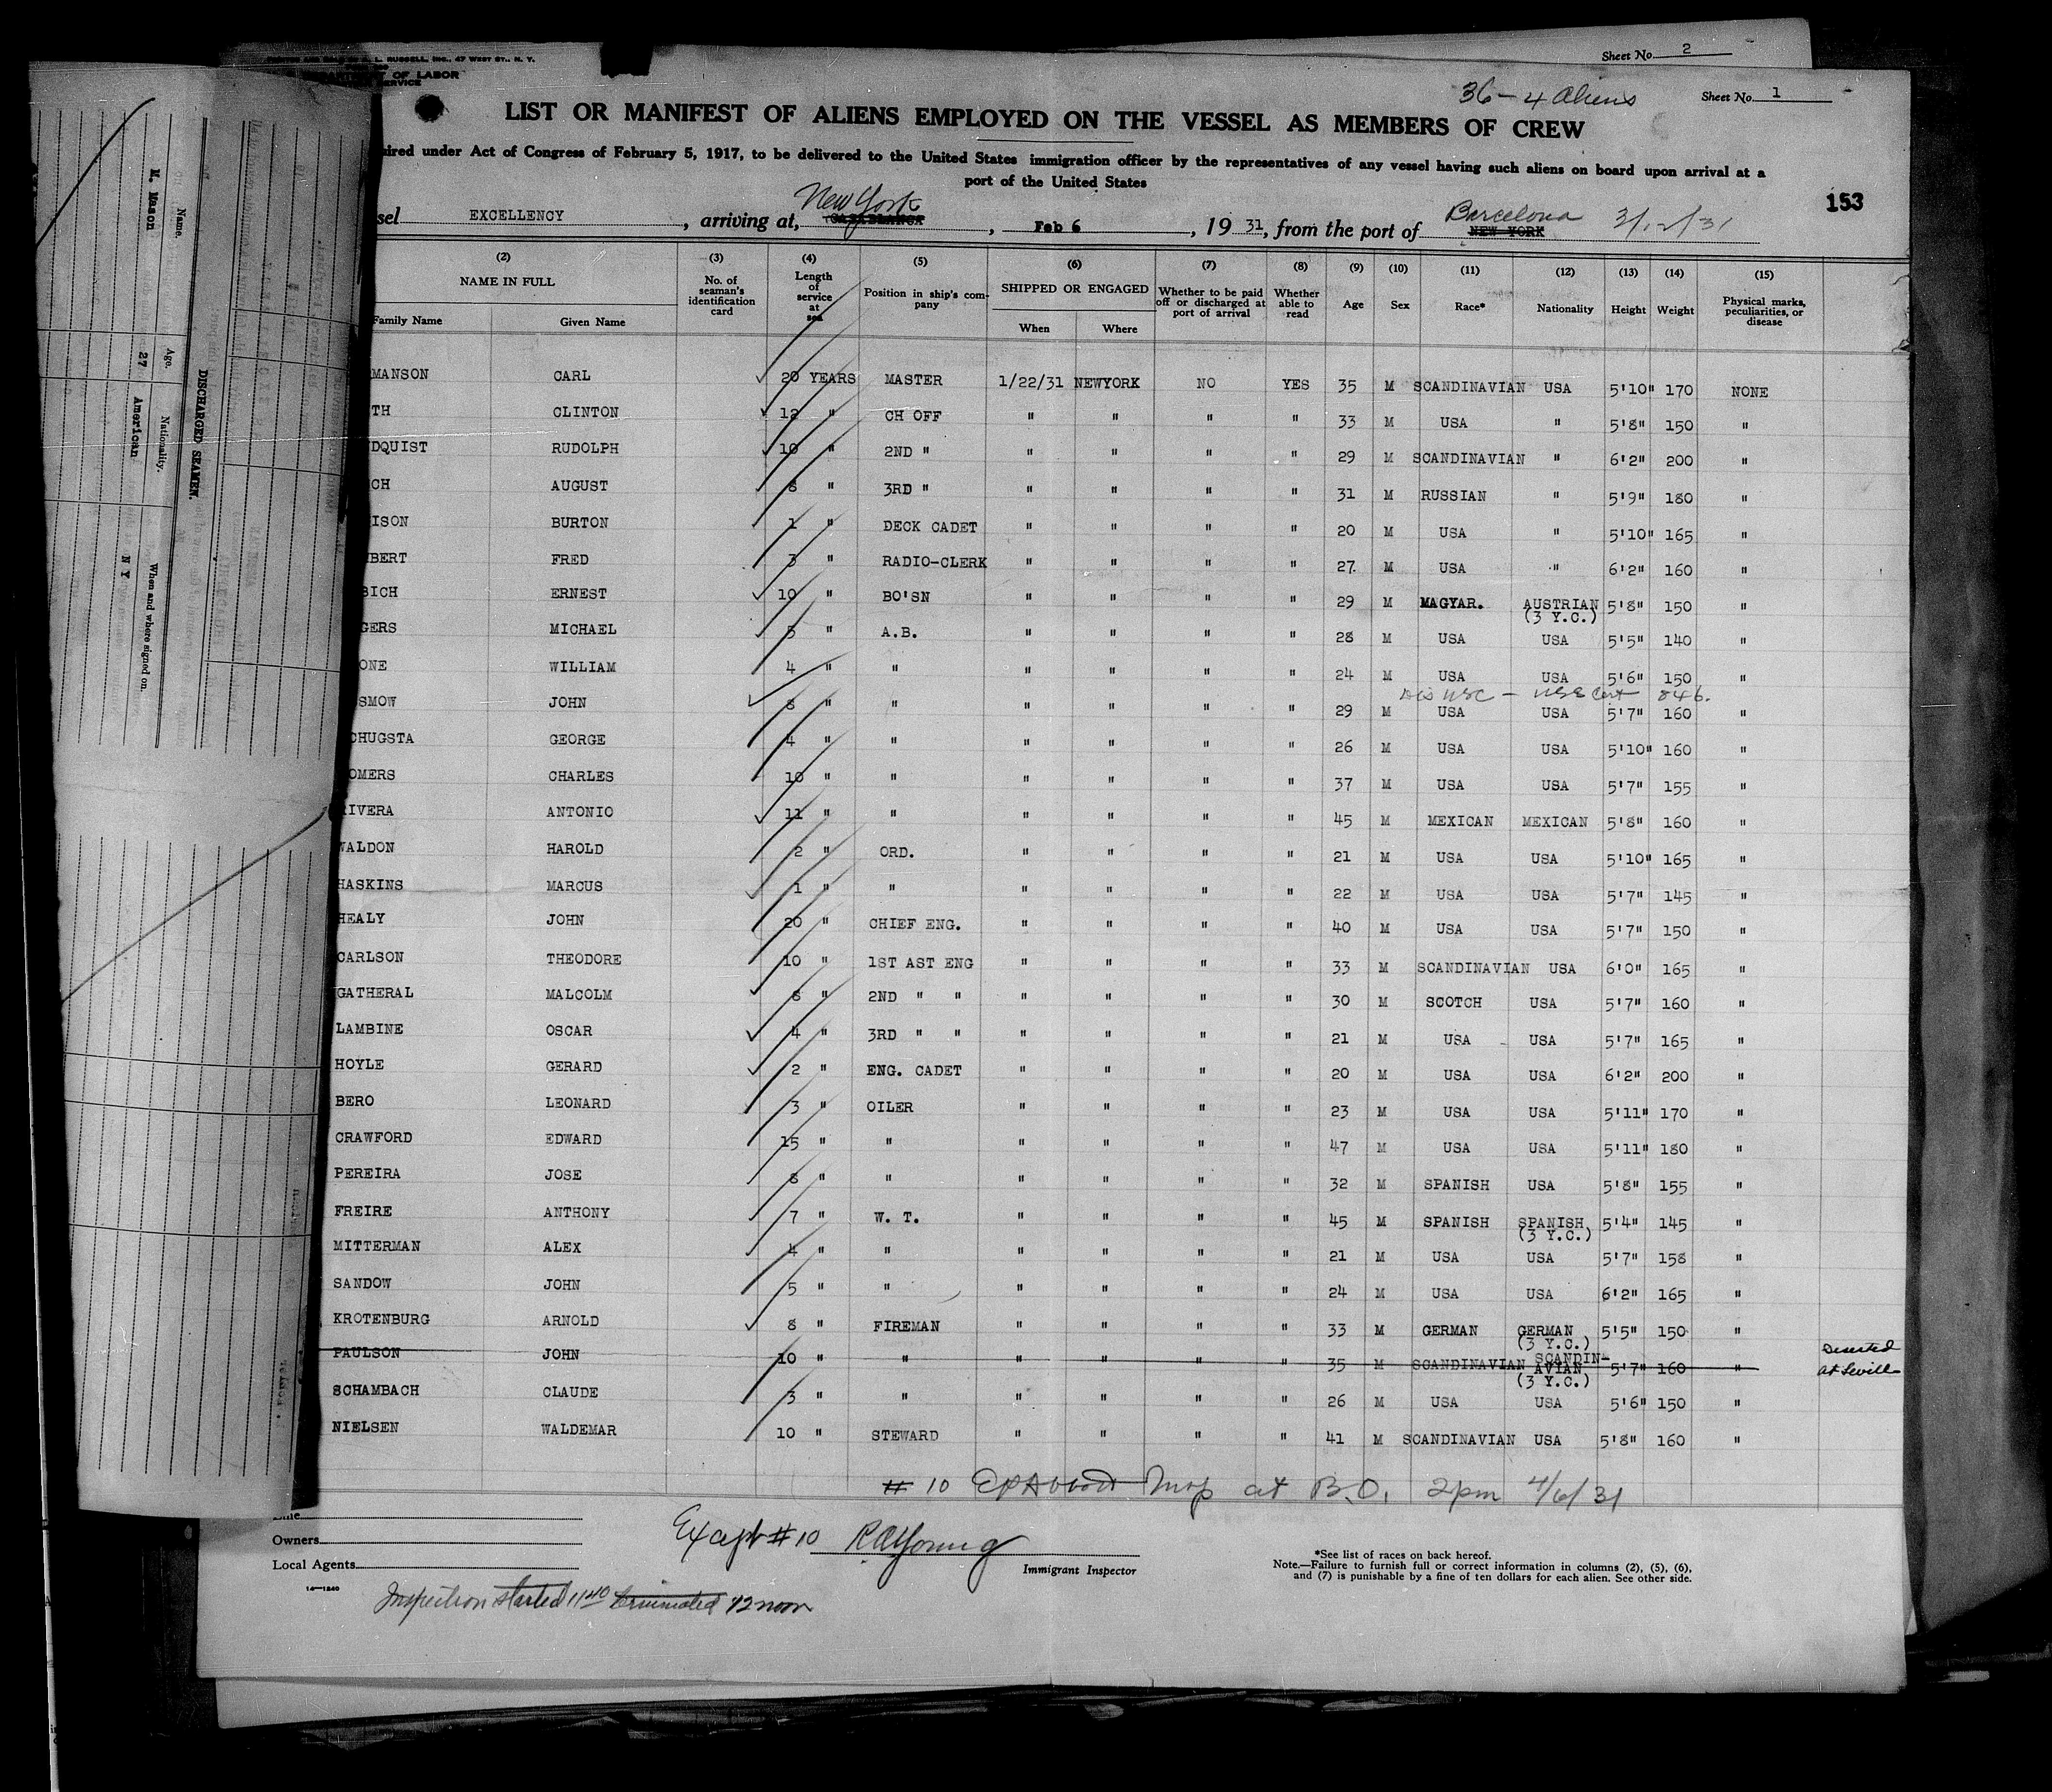 Sheet No. 2
L. RUSSELL, INC., 47 WEST ST., N. Y.
OF LABOR
SERVICE
36 - 4 Aliens
Sheet No. 1
LIST OR MANIFEST OF ALIENS EMPLOYED ON THE VESSEL AS MEMBERS OF CREW
uired under Act of Congress of February 5, 1917, to be delivered to the United States immigration officer by the representatives of any vessel having such aliens on board upon arrival at a
port of the United States
153
New York Barcelona
sel EXCELLENCY, arriving at, CASABLANCA, Feb 6, 19 31, from the port of NEW YORK 3/12/31
(2) (3) (4) (5) (6) (7) (8) (9) (10) (11) (12) (13) (14) (15)
NAME IN FULL No. of seaman's identification card Length of service at sea Position in ship's company SHIPPED OR ENGAGED Whether to be paid off or discharged at port of arrival Whether able to read Age Sex Race* Nationality Height Weight Physical marks, peculiarities, or disease
Family Name Given Name When Where
MANSON CARL 20 YEARS MASTER 1/22/31 NEWYORK NO YES 35 M SCANDINAVIAN USA 5'10" 170 NONE
TH CLINTON 12 " CH OFF " " " " 33 M USA " 5'8" 150 "
DQUIST RUDOLPH 10 " 2ND " " " " " 29 M SCANDINAVIAN " 6'2" 200 "
CH AUGUST 8 " 3RD " " " " " 31 M RUSSIAN " 5'9" 180 "
ISON BURTON 1 " DECK CADET " " " " 20 M USA " 5'10" 165 "
BERT FRED 3 " RADIO-CLERK " " " " 27 M USA " 6'2" 160 "
BICH ERNEST 10 " BO'SN " " " " 29 M MAGYAR. AUSTRIAN (3 Y.C.) 5'8" 150 "
GERS MICHAEL 5 " A.B. " " " " 28 M USA USA 5'5" 140 "
ONE WILLIAM 4 " " " " " " 24 M USA USA 5'6" 150 "
846.
SMOW JOHN 8 " " " " " " 29 M USA USA 5'7" 160 "
CHUGSTA GEORGE 4 " " " " " " 26 M USA USA 5'10" 160 "
OMERS CHARLES 10 " " " " " " 37 M USA USA 5'7" 155 "
RIVERA ANTONIO 11 " " " " " " 45 M MEXICAN MEXICAN 5'8" 160 "
WALDON HAROLD 2 " ORD. " " " " 21 M USA USA 5'10" 165 "
HASKINS MARCUS 1 " " " " " " 22 M USA USA 5'7" 145 "
HEALY JOHN 20 " CHIEF ENG. " " " " 40 M USA USA 5'7" 150 "
CARLSON THEODORE 10 " 1ST AST ENG " " " " 33 M SCANDINAVIAN USA 6'0" 165 "
GATHERAL MALCOLM 8 " 2ND " " " " " " 30 M SCOTCH USA 5'7" 160 "
LAMBINE OSCAR 4 " 3RD " " " " " " 21 M USA USA 5'7" 165 "
HOYLE GERARD 2 " ENG. CADET " " " " 20 M USA USA 6'2" 200 "
BERO LEONARD 3 " OILER " " " " 23 M USA USA 5'11" 170 "
CRAWFORD EDWARD 15 " " " " " " 47 M USA USA 5'11" 180 "
PEREIRA JOSE 8 " " " " " " 32 M SPANISH USA 5'8" 155 "
FREIRE ANTHONY 7 " W. T. " " " " 45 M SPANISH SPANISH (3 Y.C.) 5'4" 145 "
MITTERMAN ALEX 4 " " " " " " 21 M USA USA 5'7" 158 "
SANDOW JOHN 5 " " " " " " 24 M USA USA 6'2" 165 "
KROTENBURG ARNOLD 8 " FIREMAN " " " " 33 M GERMAN GERMAN (3 Y.C.) 5'5" 150 "
PAULSON JOHN 10 " " " " " " 35 M SCANDINAVIAN SCANDIN-AVIAN (3 Y.C.) 5'7" 160 " Deserted at Seville
SCHAMBACH CLAUDE 3 " " " " " " 26 M USA USA 5'6" 150 "
NIELSEN WALDEMAR 10 " STEWARD " " " " 41 M SCANDINAVIAN USA 5'8" 160 "
# 10 at B.O. 2pm 4/6/31
Except #10 R A Young
Owners
Local Agents
Immigrant Inspector
14—1240
*See list of races on back hereof.
Note.—Failure to furnish full or correct information in columns (2), (5), (6),
and (7) is punishable by a fine of ten dollars for each alien. See other side.
Inspection started 11 40 terminated 12 noon
DISCHARGED SEAMEN.
Name. Age. Nationality. When and where signed on.
M. Mason 27 American N Y